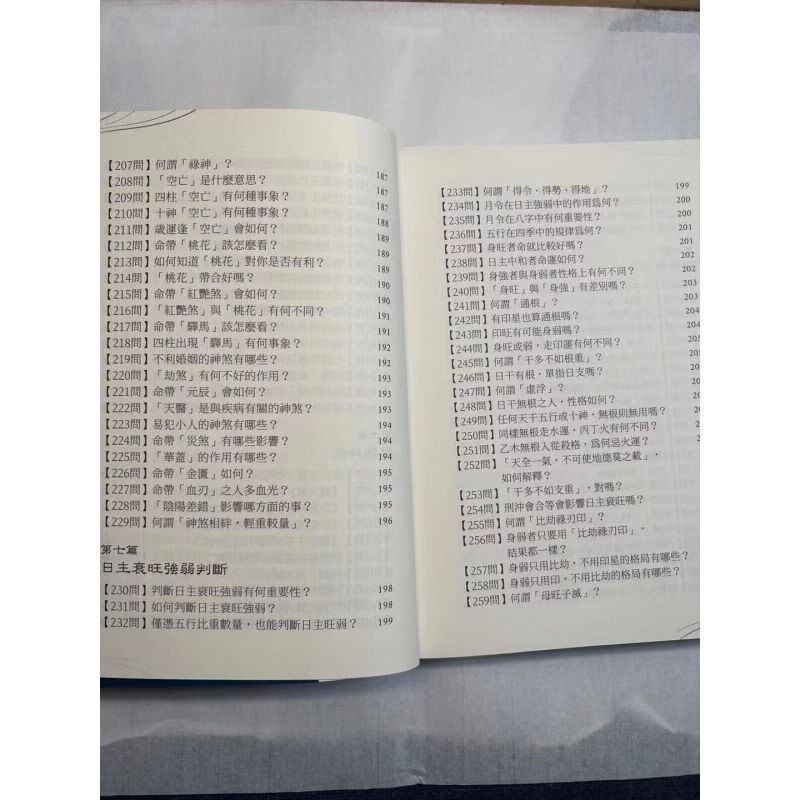 【207問】何謂「祿神」？ 187
【208問】「空亡」是什麼意思？ 187
【209問】四柱「空亡」有何種事象？ 187
【210問】十神「空亡」有何種事象？ 188
【211問】歲運逢「空亡」會如何？ 189
【212問】命帶「桃花」該怎麼看？ 189
【213問】如何知道「桃花」對你是否有利？ 189
【214問】「桃花」帶合好嗎？ 190
【215問】命帶「紅艷煞」會如何？ 190
【216問】「紅艷煞」與「桃花」有何不同？ 191
【217問】命帶「驛馬」該怎麼看？ 191
【218問】四柱出現「驛馬」有何事象？ 192
【219問】不利婚姻的神煞有哪些？ 192
【220問】「劫煞」有何不好的作用？ 193
【221問】命帶「元辰」會如何？ 193
【222問】「天醫」是與疾病有關的神煞？ 193
【223問】易犯小人的神煞有哪些？ 194
【224問】命帶「災煞」有哪些影響？ 194
【225問】「華蓋」的作用有哪些？ 194
【226問】命帶「金匱」如何？ 195
【227問】命帶「血刃」之人多血光？ 195
【228問】「陰陽差錯」影響哪方面的事？ 195
【229問】何謂「神煞相絆，輕重較量」？ 196
第七篇
日主衰旺強弱判斷
【230問】判斷日主衰旺強弱有何重要性？ 198
【231問】如何判斷日主衰旺強弱？ 198
【232問】僅憑五行比重數量，也能判斷日主旺弱？ 199
【233問】何謂「得令、得勢、得地」？ 199
【234問】月令在日主強弱中的作用為何？ 200
【235問】月令在八字中有何重要性？ 200
【236問】五行在四季中的規律為何？ 201
【237問】身旺者命就比較好嗎？ 201
【238問】日主中和者命運如何？ 202
【239問】身強者與身弱者性格上有何不同？ 202
【240問】「身旺」與「身強」有差別嗎？ 203
【241問】何謂「通根」？ 203
【242問】有印星也算通根嗎？ 204
【243問】印旺有可能身弱嗎？ 204
【244問】身旺或弱，走印運有何不同？ 205
【245問】何謂「干多不如根重」？
【246問】日干有根，單指日支嗎？
【247問】何謂「虛浮」？
【248問】日干無根之人，性格如何？
【249問】任何天干五行或十神，無根則無用嗎？
【250問】同樣無根走水運，丙丁火有何不同？
【251問】乙木無根入從殺格，為何忌火運？
【252問】「天全一氣，不可使地德莫之載」，
如何解釋？
【253問】「干多不如支重」，對嗎？
【254問】刑沖會合等會影響日主衰旺嗎？
【255問】何謂「比劫祿刃印」？
【256問】身弱者只要用「比劫祿刃印」，
結果都一樣？
【257問】身弱只用比劫，不用印星的格局有哪些？
【258問】身弱只用印，不用比劫的格局有哪些？
【259問】何謂「母旺子滅」？